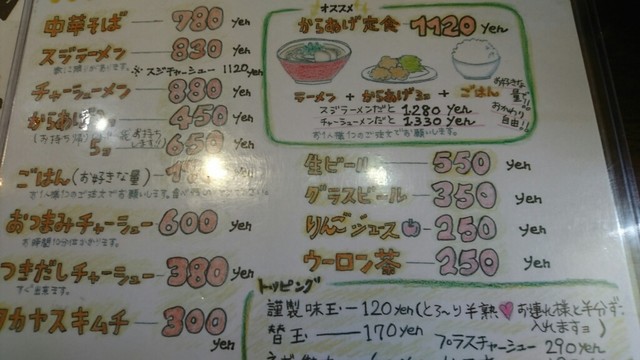 中華そば 780 yen
スジラーメン 830 yen
※スジチャーシュー 1120 yen
チャーシューメン 880 yen
からあげ 450 yen
(お持ち帰り) 5コ 650 yen
ごはん(お好きな量) yen
おつまみチャーシュー 600 yen
お時間10分位かかります。
つきだしチャーシュー 380 yen
すぐ出来ます。
タカナスキムチ 300 yen
オススメ
からあげ定食 1120 yen
ラーメン + からあげ3コ + ごはん
お好きな量で!!
おかわり自由!!
スジラーメンだと 1,280 yen
チャーシューメンだと 1,330 yen
生ビール 550 yen
グラスビール 350 yen
りんごジュース 250 yen
ウーロン茶 250 yen
トッピング
謹製味玉 120 yen (とろ〜り半熟♥お連れ様と半分ずつ
入れますョ)
替玉 170 yen
プラスチャーシュー 290 yen